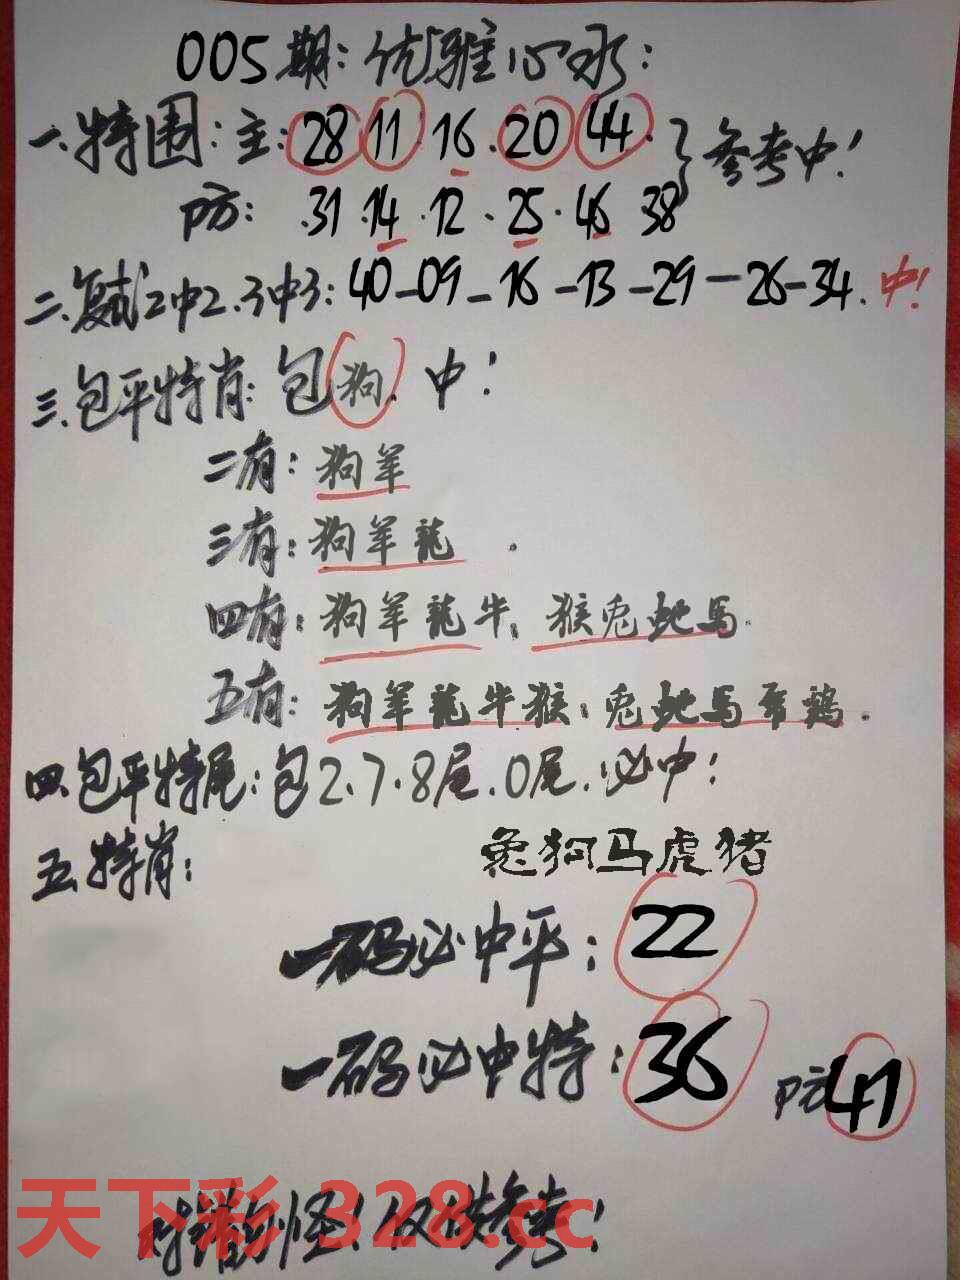 005期:优雅心水:
一.特围:主:28 11 16.20 44.}参考中!
防: .31 .14 .12 .25 .46 38
二.复式2中2.3中3:40-09-16-13-29-26-34.中!
三.包平特肖:包狗.中!
二有:狗羊
三有:狗羊龍.
四有:狗羊龍牛;猴兎蛇馬.
五有:狗羊龍牛猴;兎蛇馬 鶏.
四.包平特尾:包2.7.8尾.0尾.必中!
五.特肖: 兔狗马虎猪
一码必中平:22
一码必中特:36 防41
对错勿怪!仅供参考!
天下彩 328.cc